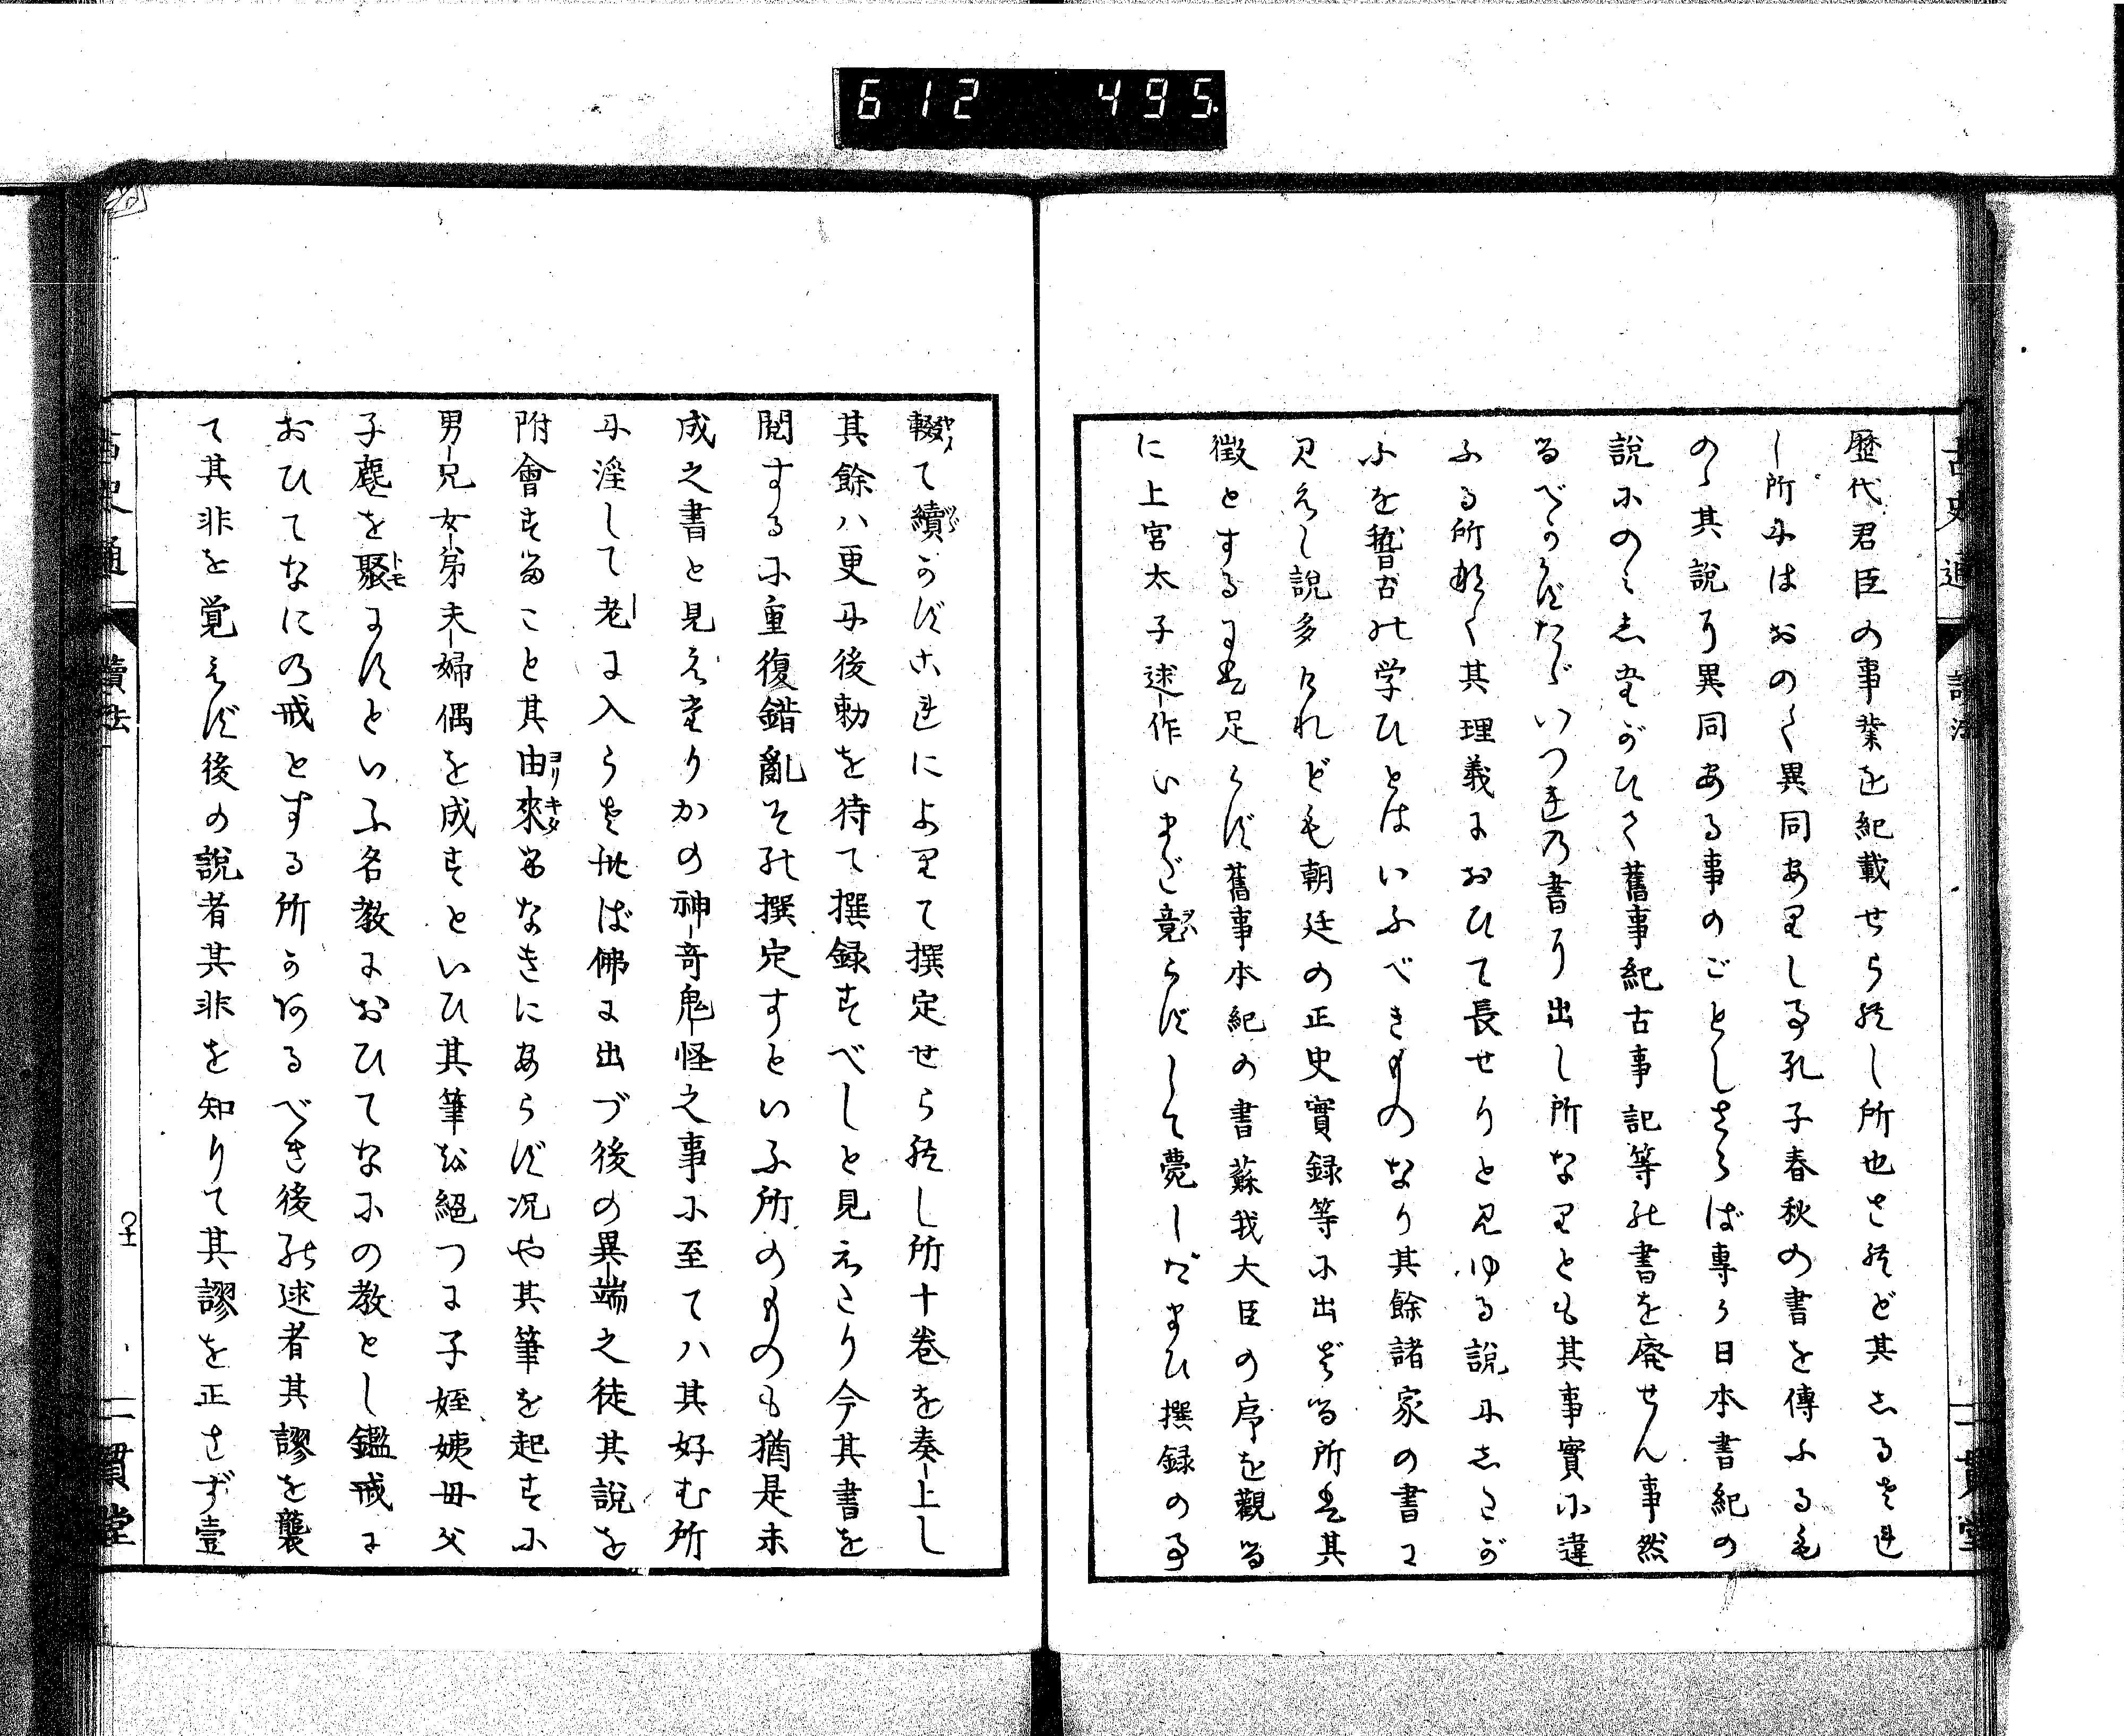 612 495
古史通 讀法 一貫堂
歴代君臣の事業を紀載せられし所也されど其しるされ
し所にはおの〱異同ありし事孔子春秋の書を傳ふるも
のゝ其説り異同ある事のごとしさらば專ら日本書紀の
説にのみしたがひて舊事紀古事記等の書を廃せん事然
るべからずたゞいづれの書り出し所なりとも其事實に違
ふる所なく其理義におひて長せりと見ゆる説にしたが
ふを稽古の学ひとはいふべきものなり其餘諸家の書に
見えし説多けれども朝廷の正史實録等に出ざる所は其
徴とするには足らず舊事本紀の書蘇我大臣の序を觀る
に上宮太子述作いまだ竟らずして薨したまひ撰録の事
輟て續かずこれによりて撰定せられし所十卷を奏上し
其餘ハ更に後勅を待て撰録すべしと見えたり今其書を
閲するに重復錯亂その撰定すといふ所のものも猶是未
成之書と見えたりかの神奇鬼怪之事に至てハ其好む所
に淫して老に入らされば佛に出づ後の異端之徒其説を
附會すること其由來るなきにあらず况や其筆を起すに
男兄女弟夫婦偶を成すといひ其筆を絕つに子姪姨母父
子麀を聚にすといふ名教におひてなにの教とし鑑戒に
おひてなにの戒とする所かあるべき後の述者其謬を襲
て其非を覚えず後の説者其非を知りて其謬を正さず壹
古史通 讀法 一貫堂